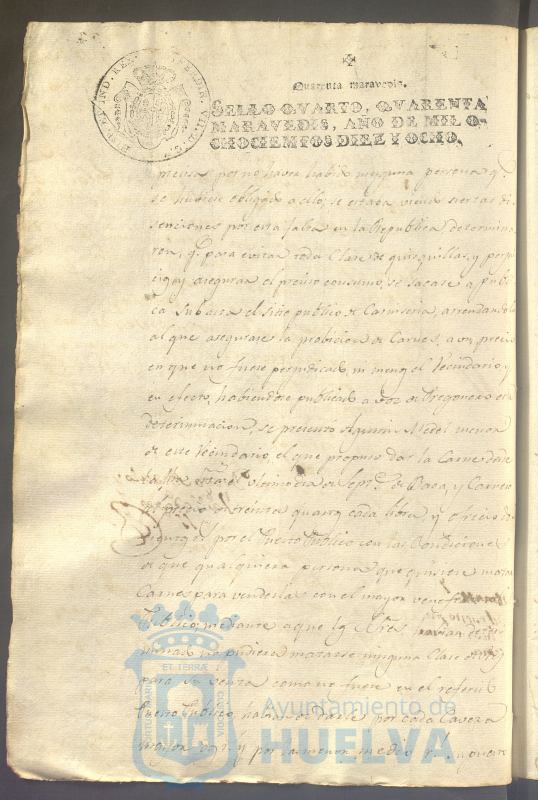 Quarenta maravedis.
SELLO QVARTO, QVARENTA
MARAVEDIS, AÑO DE MIL O-
CHOCIENTOS DIEZ Y OCHO.
precisa por no haver habido ninguna persona q.
se hubiese obligado a ello, se estava viendo siertas di
senciones por esta falta en la Republica determina
ron, q. para evitar toda Clase de quisquillas, y perjui
cios y asegurar el preciso consumo, se sacase a publi
ca subasta el sitio publico de Carniseria, arrendandolo
al que asegurase la probicion de Carnes, a un precio
en que no fuese perjudicado ni menos el Vecindario, y
en efecto, habiendose publicado a voz de Pregonero esta
determinacion, se presento Agustin Medel menor
de este Vecindario, el que propuso dar la Carne desde
el ultimo dia de Sept.e de Baca, y Carnero
al precio de treinta quartos cada libra, y
por el Puesto Publico con las Condiciones
de que qualquiera persona que quisiere matar
Carnes para venderlas con el mayor veneficio
Publico, mediante a que los S.res havian
no pudiera matarse ninguna Clase de
para su venta como no fuese en el referido
Puesto Publico, habian de darle por cada Cavesa
mayor y por la menor medio r.l
ET TERRÆ
PORTUS MARIS
CUSTODIA
Ayuntamiento de
HUELVA